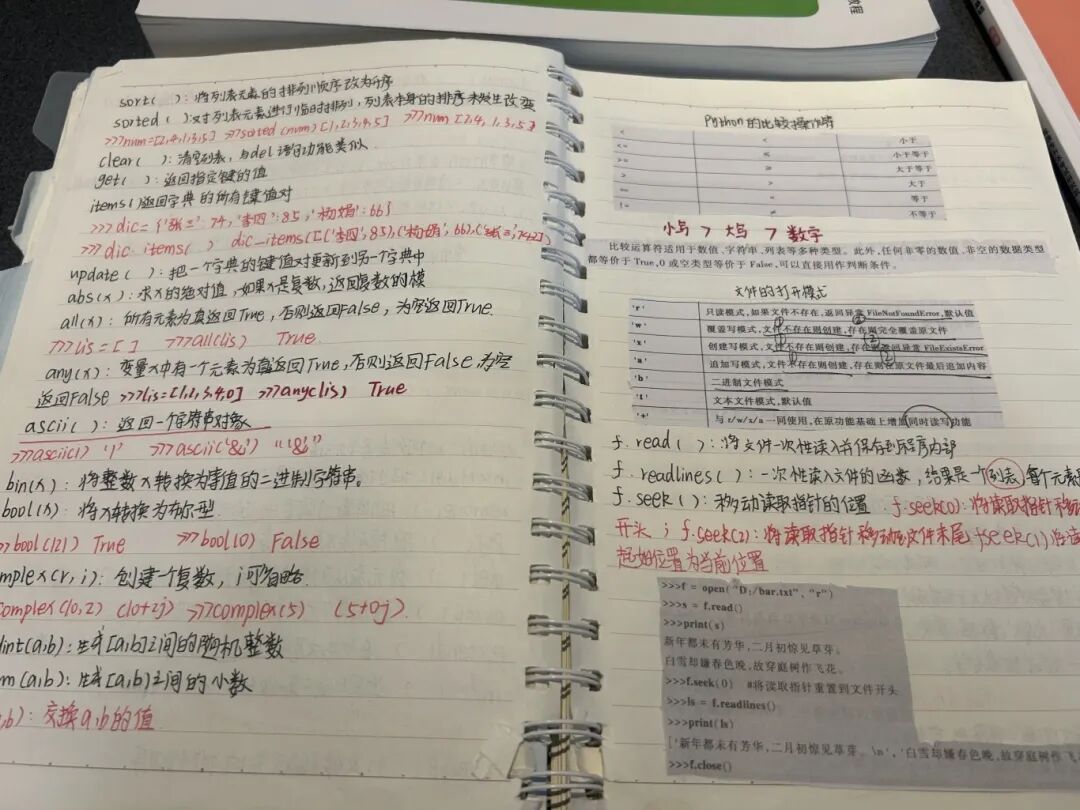 教程
sort( ): 将列表元素的排列顺序改为升序
sorted( ): 对列表元素进行临时排列, 列表本身的排序未发生改变
>>>num=[2,4,1,3,5] >>>sorted(num) [1,2,3,4,5] >>>num [2,4,1,3,5]
clear( ): 清空列表, 与del语句功能类似.
get( ): 返回指定键的值
items( )返回字典的所有键值对
>>>dic={'张三':74,'李四':85,'杨娟':66}
>>>dic.items( ) dic_items([('李四',85),('杨娟',66),('张三',74)])
update( ): 把一个字典的键值对更新到另一个字典中
abs(x): 求x的绝对值, 如果x是复数, 返回复数的模
all(x): 所有元素为真返回True, 否则返回False, 为空返回True.
>>>lis=[ ] >>>all(lis) True
any(x): 变量x中有一个元素为真返回True, 否则返回False, 为空
返回False >>>lis=[1,2,3,4,0] >>>any(lis) True
ascii( ): 返回一个字符串对象
>>>ascii(1) '1' >>>ascii('&') "'&'"
bin(x): 将整数x转换为等值的二进制字符串。
bool(x): 将x转换为布尔型.
>>>bool(12) True >>>bool(0) False
mplex(r,i): 创建一个复数, i可省略
complex(10,2) (10+2j) >>>complex(5) (5+0j)
dint(a,b): 生成[a,b]之间的随机整数
m(a,b): 生成[a,b]之间的小数
,b): 交换a,b的值
Python的比较操作符
< < 小于
<= ≤ 小于等于
>= ≥ 大于等于
> > 大于
== = 等于
!= ≠ 不等于
小写 > 大写 > 数字
比较运算符适用于数值、字符串、列表等多种类型。此外,任何非零的数值、非空的数据类型
都等价于True,0或空类型等价于False,可以直接用作判断条件。
文件的打开模式
'r' 只读模式,如果文件不存在,返回异常FileNotFoundError,默认值
'w' 覆盖写模式,文件不存在则创建,存在则完全覆盖原文件
'x' 创建写模式,文件不存在则创建,存在则返回异常FileExistsError
'a' 追加写模式,文件不存在则创建,存在则在原文件最后追加内容
'b' 二进制文件模式
't' 文本文件模式,默认值
'+' 与r/w/x/a一同使用,在原功能基础上增加同时读写功能
f.read( ): 将文件一次性读入并保存到程序内部
f.readlines( ): 一次性读入文件的函数, 结果是一个列表, 每个元素
f.seek( ): 移动读取指针的位置 f.seek(0): 将读取指针移动
开头; f.seek(2): 将读取指针移动到文件末尾 f.seek(1)将读
起始位置为当前位置
>>>f = open("D:/bar.txt", "r")
>>>s = f.read()
>>>print(s)
新年都未有芳华,二月初惊见草芽。
白雪却嫌春色晚,故穿庭树作飞花。
>>>f.seek(0) #将读取指针重置到文件开头
>>>ls = f.readlines()
>>>print(ls)
['新年都未有芳华,二月初惊见草芽。\n', '白雪却嫌春色晚,故穿庭树作飞花
>>>f.close()